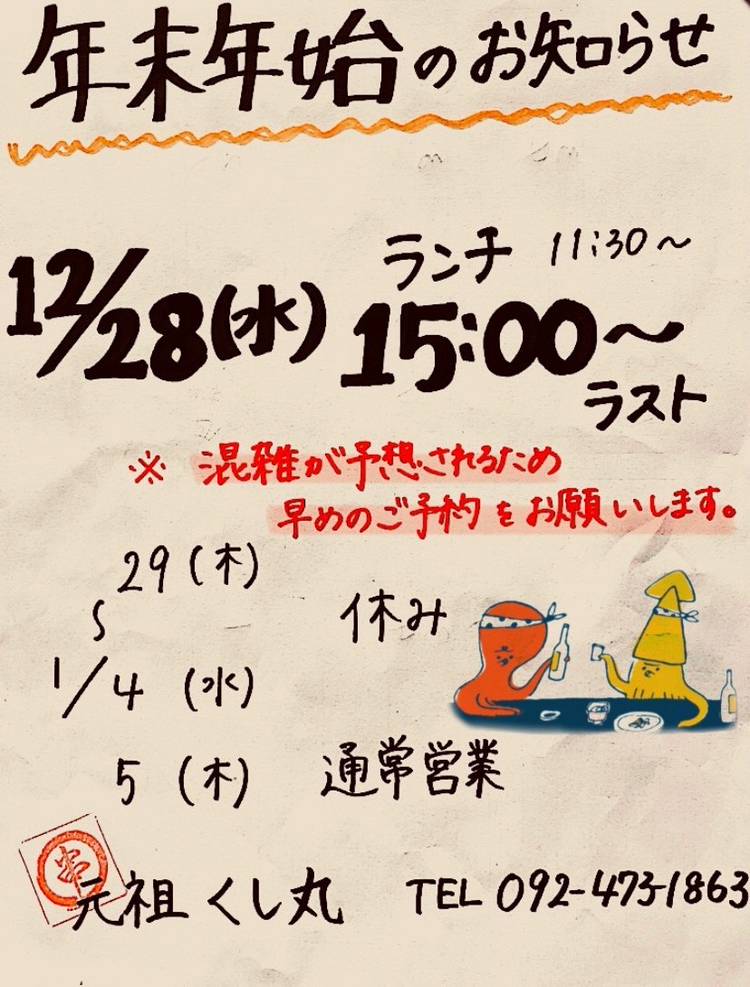 年末年始のお知らせ
ランチ 11:30〜
12/28(水) 15:00〜
ラスト
※ 混雑が予想されるため
早めのご予約をお願いします。
29(木)
〜
1/4(水)
休み
5(木) 通常営業
串
元祖くし丸 TEL 092-473-1863